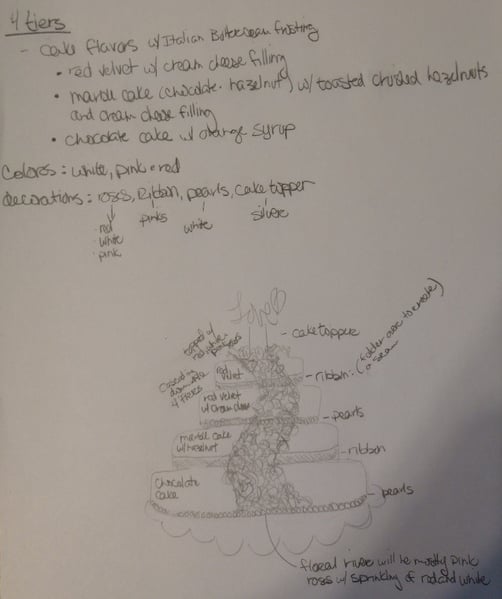 4 tiers
- cake flavors w/ Italian Buttercream frosting
• red velvet w/ cream cheese filling
• marble cake (chocolate - hazelnut) w/ toasted crushed hazelnuts
and cream cheese filling
• chocolate cake w/ orange syrup
colors: white, pink + red
decorations: roses, Ribbon, pearls, cake topper
• red
• white
• pink
pinks
white
silver
Love
cake topper
topped w/
red white
pink roses
Cascading
down the
4 tiers
red
velvet
ribbon
to create
a seam
red velvet
w/ cream cheese
pearls
marble cake
w/ hazelnut
ribbon
chocolate
cake
pearls
floral river will be mostly pink
roses w/ sprinkling of red and white